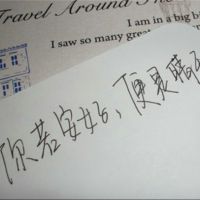 Travel Around The
I am in a big bi
I saw so many great
你若安好、便是晴